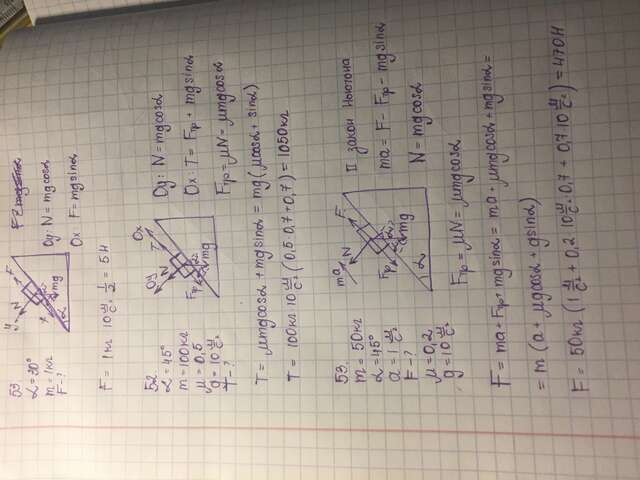 53.
α = 30°
m = 1кг
F - ?
y N F
x α mg
α
F = mgsinα
Oy: N = mgcosα
Ox: F = mgsinα
F = 1кг 10 м/с². 1/2 = 5Н
52.
α = 45°
m = 100кг
μ = 0,5
g = 10 м/с²
T - ?
Oy Ox
N T
Fтр α
mg
Oy: N = mgcosα
Ox: T = Fтр + mgsinα
Fтр = μN = μmgcosα
T = μmgcosα + mgsinα = mg(μcosα + sinα)
T = 100кг 10 м/с² (0,5·0,7 + 0,7) = 1050кг
53.
m = 50кг
α = 45°
a = 1 м/с²
F - ?
μ = 0,2
g = 10 м/с²
ma N F
Fтр mg
α
II закон Ньютона
ma = F - Fтр - mgsinα
N = mgcosα
Fтр = μN = μmgcosα
F = ma + Fтр + mgsinα = ma + μmgcosα + mgsinα =
= m (a + μgcosα + gsinα)
F = 50кг (1 м/с² + 0,2 · 10 м/с² · 0,7 + 0,7 · 10 м/с²) = 470Н